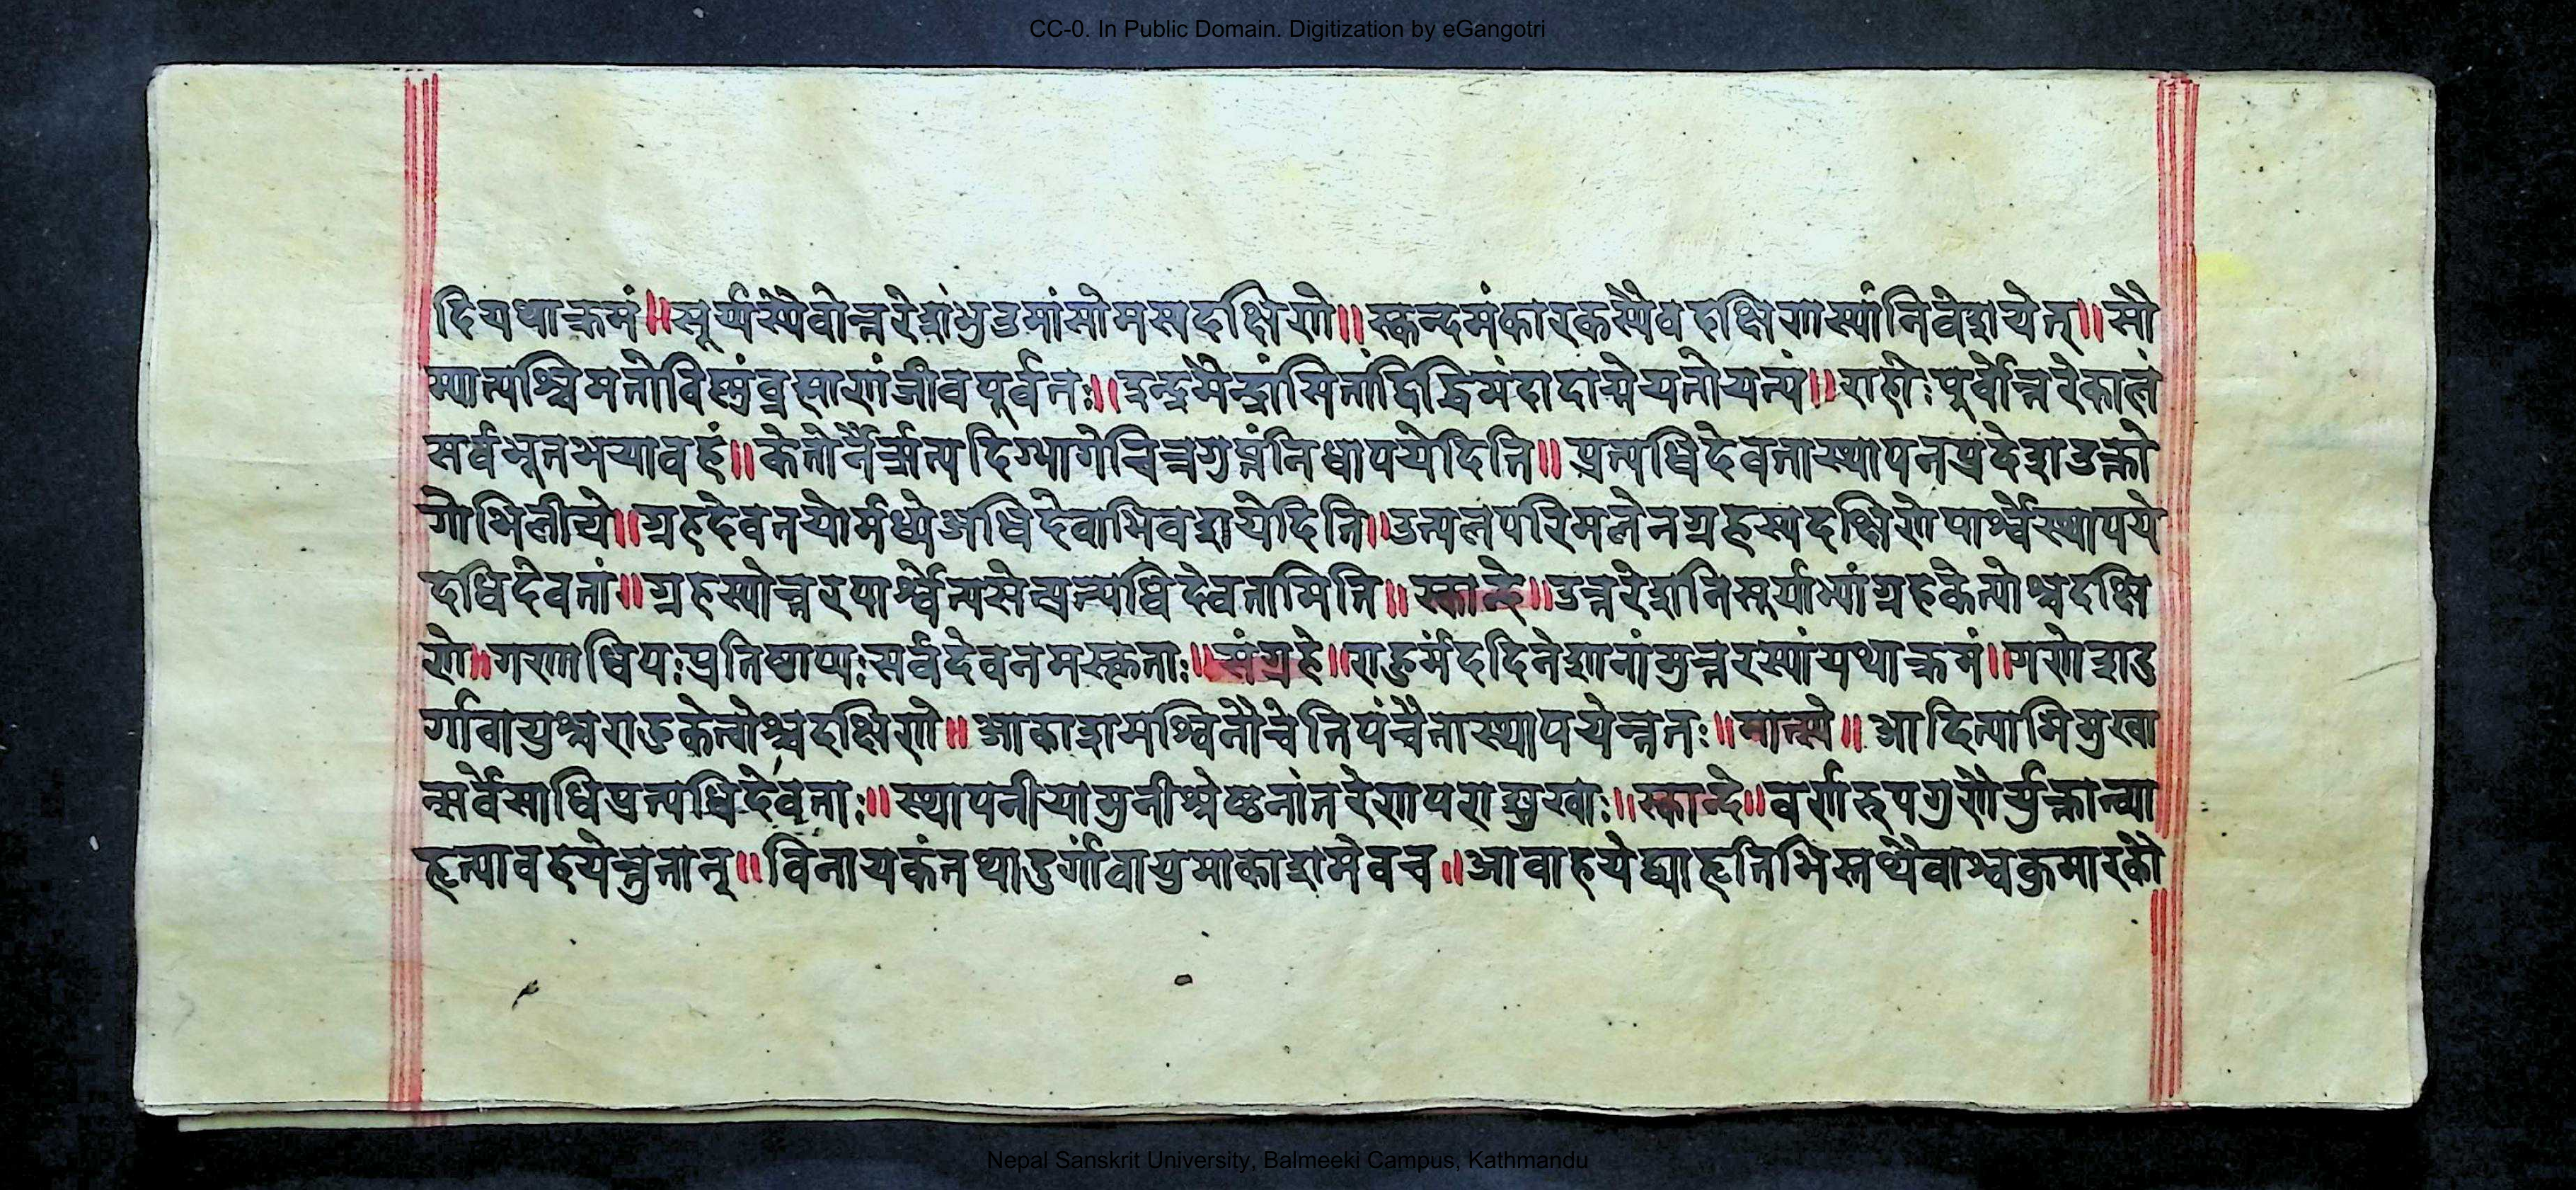 CC-0. In Public Domain. Digitization by eGangotri
दियथाक्रमं॥सूर्यस्यैवोत्तरेशंभुउमांसोमस्यदक्षिणे॥स्कन्दमंकारकस्यैवदक्षिणस्यांनिवेशयेत्॥सौ
म्यात्पश्चिमतोविष्णुंब्रह्माणंजीवपूर्वतः॥इन्द्रमैन्द्रांसितांद्विद्धिमंदादाग्नेयतोयत्यं॥राहोःपूर्वोत्तरेकालं
सर्वभूतभयावहं॥केतोर्नैर्ऋत्यदिग्भागेचित्रगुप्तंनिधापयेदिति॥प्रत्यधिदेवतास्थापनप्रदेशउक्तो
गोभिलीये॥ग्रहदेवतयोर्मध्येअधिदेवाभिवशयेदिति॥उत्पलपरिमलेनग्रहस्यदक्षिणेपार्श्वेस्थापये
दधिदेवतां॥ग्रहस्योत्तरपार्श्वेन्यसेत्प्रत्यधिदेवतामिति॥स्कान्दे॥उत्तरेशनिसूर्याभ्यांग्रहकेत्योश्चदक्षि
णे॥गणाधिपःप्रतिष्ठाप्यःसर्वदेवनमस्कृताः॥संग्रहे॥राहुमंददिनेशानांमुत्तरस्यांयथाक्रमं॥गणेशदु
र्गावायुश्चराहुकेत्वोश्चदक्षिणे॥आकाशमश्विनौचेतिपंचैतास्थापयेत्ततः॥मात्स्ये॥आदित्याभिमुखा
न्सर्वेसाधिप्रत्यधिदेवताः॥स्थापनीयामुनीश्रेष्ठनांतरेणपराङ्मुखाः॥स्कान्दे॥वर्णरुपगुणैर्युक्तान्व्या
हृत्यावहयेत्तुतान्॥विनायकंतथादुर्गांवायुमाकाशमेवच॥आवाहयेद्व्याहृतिभिस्तथैवाश्वकुमारकौ
Nepal Sanskrit University, Balmeeki Campus, Kathmandu